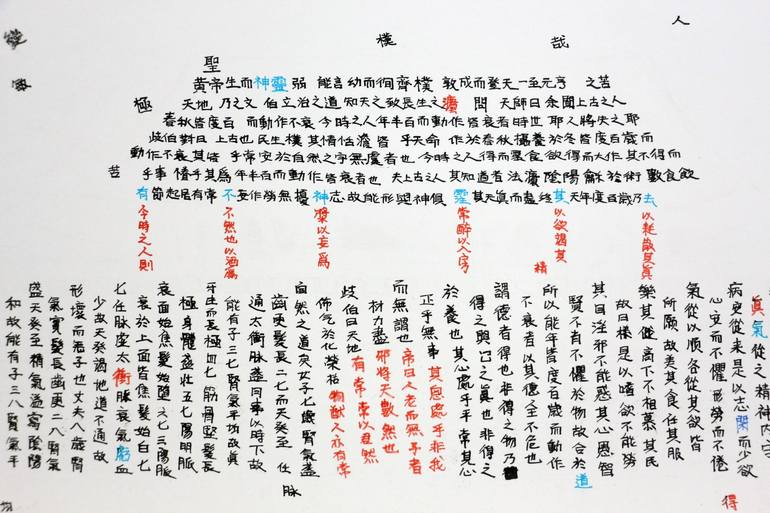 人
樸 哉
聖
黃帝生而神靈 弱 能言幼而徇齊樸 敦成而登天一至元亨 苦之
極 天地 乃之文 伯立治之道知天之致長生之 問 天師曰余 上古之人
春秋皆度百 而動作不衰今時之人年半百而動作皆衰者時世 耶人將失之耶
歧伯對曰 上古也民生樸其情恬澹皆 乎天命 作於春秋攝養於冬皆度百歲而
動作不衰其皆 乎常安於自然之宇無慮者也 今時之人得而暴食欲得而大作其不得而
苦 乎事 情乎其爲年半百而動作皆衰者也 夫上古人其知道者法 陰陽龢於術 數食飲
有節起居有常 不妄作勞無擾神志故能形與神俱 其天真而盡終其天年度百歲乃去
以耗散其真
以欲竭其精
常醉以入房
漿以妄爲
不然也以酒爲
今時之人則
真氣從之精神內守
病安從來是以志閑而少欲
心安而不懼形勞而不倦
氣從以順各從其欲皆
所願故美其食任其服
樂其俗高下不相慕其民
故曰樸是以嗜欲不能勞
其目淫邪不能惑其心愚智
賢不肖不懼於物故合於道
所以能年皆度百歲而動作
不衰者以其德全不危也
謂德者得也非得之物乃
得之與 之真也非得之
於養也其心處乎乎常其心
正乎無事其息處乎非我
而無謂也帝曰人老而無子者
材力盡邪將天數然也
歧伯曰天地有常常以君然
佈气於化榮枯物猷人亦有常
自然之道矣女子七歲腎氣盛
齒更髮長二七而天癸至任脈
通太衝脈盛同事以時下故
能有子三七腎氣平均故真
牙生而長極四七筋骨堅髮長
極身體盛壯五七陽明脈
衰面始焦髮始墮六七三陽脈
衰於上面皆焦髮始白七
七任脈虛太衝脈衰氣虧血
少故天癸竭地道不通故
形壞而無子也丈夫八歲腎
氣實髮長齒更二八腎氣
盛天癸至精氣溢寫陰陽
和故能有子三八腎氣平
得